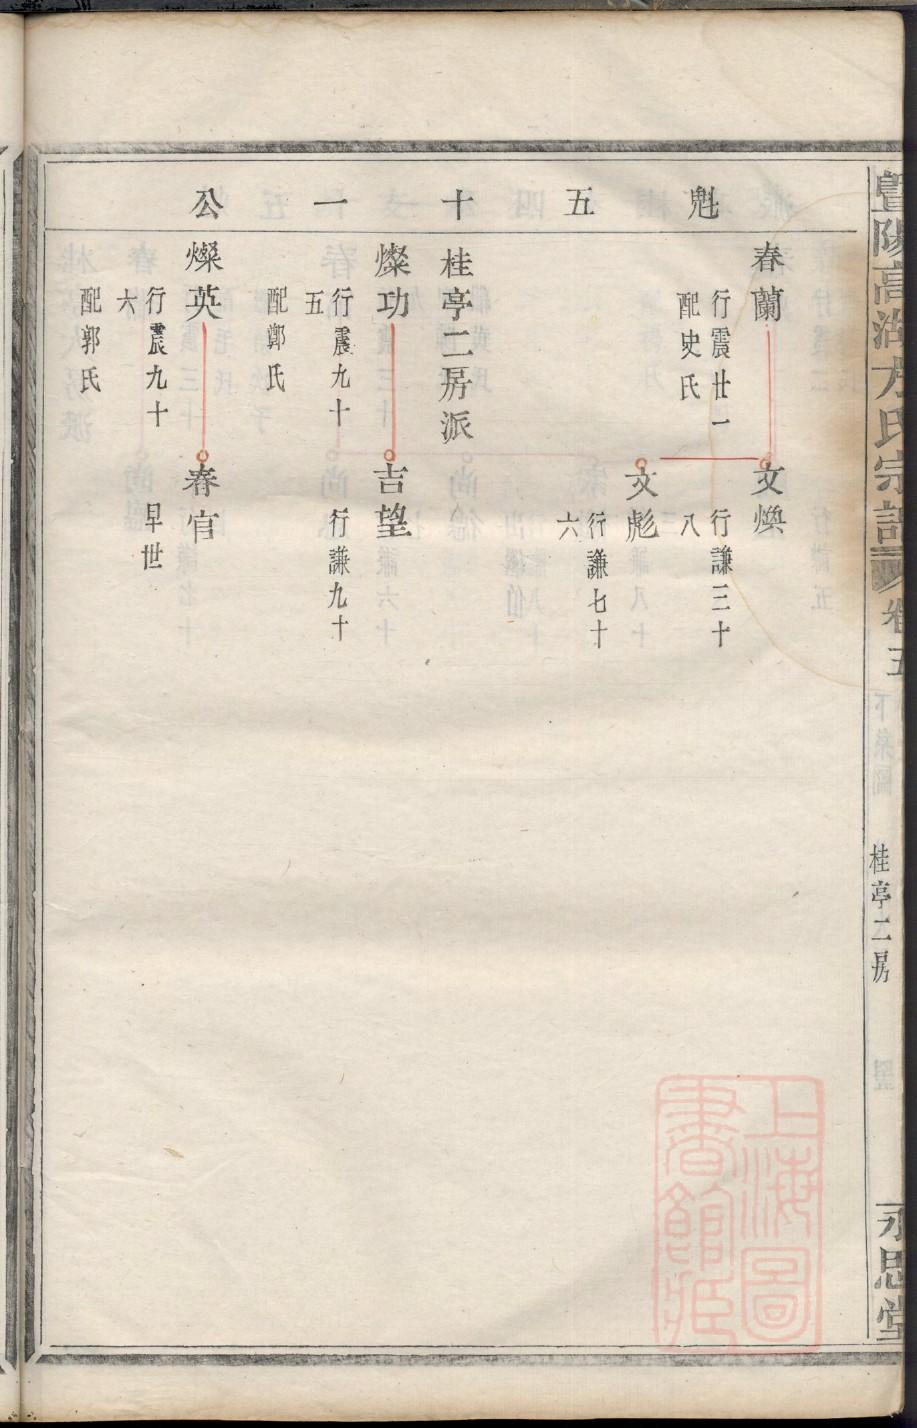 暨陽高湖方氏宗譜
卷五
下集圖
桂亭二房
永思堂
魁五十一公
春蘭
行震廿一
配史氏
文煥
行謙三十
八
文彪
行謙七十
六
桂亭二房派
燦功
行震九十
五
配鄭氏
吉望
行謙九十
燦英
行震九十
六
配郭氏
春官
早世
上海圖
書館藏